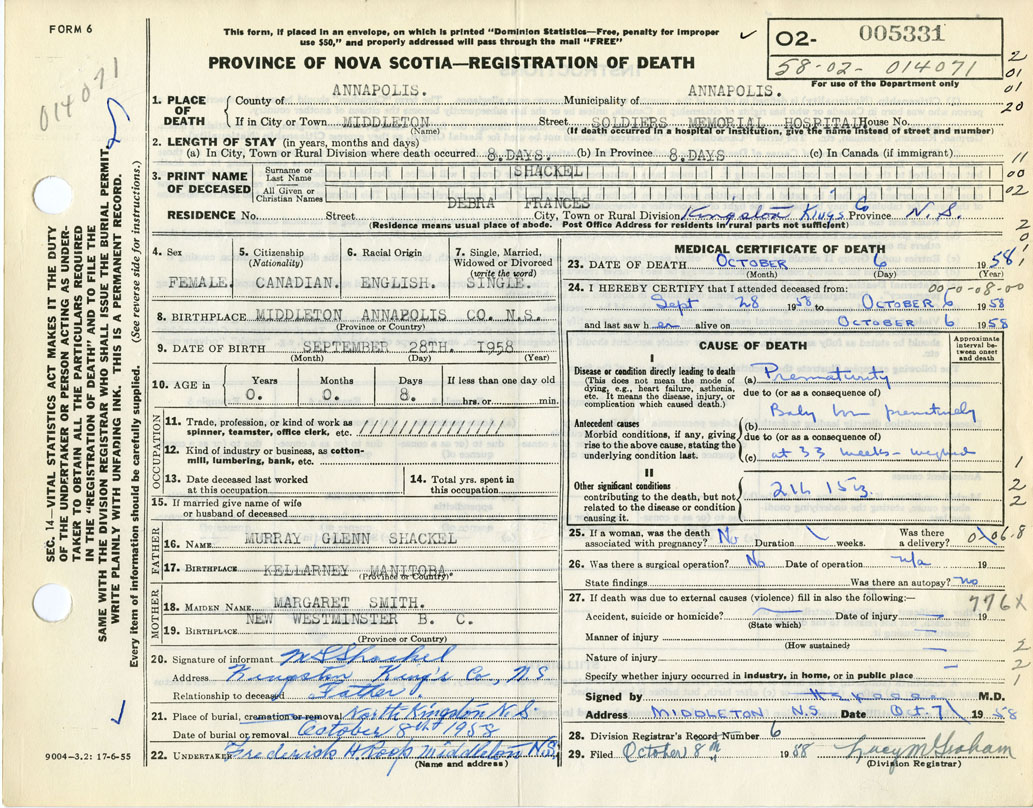 FORM 6
This form, if placed in an envelope, on which is printed "Dominion Statistics—Free, penalty for improper
use $50," and properly addressed will pass through the mail "FREE"
PROVINCE OF NOVA SCOTIA—REGISTRATION OF DEATH
02- 005331
58-02-014071
For use of the Department only
014071
2
01
01
20
1. PLACE OF DEATH
County of ANNAPOLIS. Municipality of ANNAPOLIS.
If in City or Town MIDDLETON Street SOLDIERS MEMORIAL HOSPITAL House No.
(Name) (If death occurred in a hospital or institution, give the name instead of street and number)
2. LENGTH OF STAY (in years, months and days)
(a) In City, Town or Rural Division where death occurred 8.DAYS. (b) In Province 8.DAYS (c) In Canada (if immigrant)
11
00
02
3. PRINT NAME OF DECEASED
Surname or Last Name SHACKEL
All Given or Christian Names DEBRA FRANCES
RESIDENCE No. Street City, Town or Rural Division Kingston Kings 6 Province N.S.
(Residence means usual place of abode. Post Office Address for residents in rural parts not sufficient)
2
0
1
SEC. 14—VITAL STATISTICS ACT MAKES IT THE DUTY
OF THE UNDERTAKER OR PERSON ACTING AS UNDER-
TAKER TO OBTAIN ALL THE PARTICULARS REQUIRED
IN THE "REGISTRATION OF DEATH" AND TO FILE THE
SAME WITH THE DIVISION REGISTRAR WHO SHALL ISSUE THE BURIAL PERMIT.
WRITE PLAINLY WITH UNFADING INK. THIS IS A PERMANENT RECORD.
Every item of information should be carefully supplied. (See reverse side for instructions.)
4. Sex
FEMALE.
5. Citizenship
(Nationality)
CANADIAN.
6. Racial Origin
ENGLISH.
7. Single, Married,
Widowed or Divorced
(write the word)
SINGLE.
8. BIRTHPLACE MIDDLETON ANNAPOLIS CO. N.S.
(Province or Country)
9. DATE OF BIRTH SEPTEMBER 28TH. 1958
(Month) (Day) (Year)
10. AGE in Years Months Days If less than one day old
0. 0. 8. hrs. or min.
OCCUPATION
11. Trade, profession, or kind of work as
spinner, teamster, office clerk, etc.
12. Kind of industry or business, as cotton-
mill, lumbering, bank, etc.
13. Date deceased last worked
at this occupation
14. Total yrs. spent in
this occupation
15. If married give name of wife
or husband of deceased
FATHER
16. NAME MURRAY GLENN SHACKEL
17. BIRTHPLACE KELLARNEY MANITOBA.
(Province or Country)
MOTHER
18. MAIDEN NAME MARGARET SMITH.
19. BIRTHPLACE NEW WESTMINSTER B. C.
(Province or Country)
20. Signature of informant M G Shackel
Address Kingston King's Co, N S
Relationship to deceased Father.
21. Place of burial, cremation or removal North Kingston N.S.
Date of burial or removal October 8th 1958
22. UNDERTAKER Frederick H. Roop Middleton N.S.
(Name and address)
9004-3.2: 17-6-55
MEDICAL CERTIFICATE OF DEATH
23. DATE OF DEATH OCTOBER 6 1958
(Month) (Day) (Year)
24. I HEREBY CERTIFY that I attended deceased from: 00-0-08-00
Sept 28 1958 to OCTOBER 6 1958
and last saw her alive on OCTOBER 6 1958
CAUSE OF DEATH
Approximate
interval be-
tween onset
and death
I
Disease or condition directly leading to death
(This does not mean the mode of
dying, e.g., heart failure, asthenia,
etc. It means the disease, injury, or
complication which caused death.)
(a) Prematurity
due to (or as a consequence of)
Baby born prematurely
Antecedent causes
Morbid conditions, if any, giving
rise to the above cause, stating the
underlying condition last.
(b)
due to (or as a consequence of)
(c) at 33 weeks - weighed
II
Other significant conditions
contributing to the death, but not
related to the disease or condition
causing it.
2 lb 15 oz.
1
2
2
25. If a woman, was the death
associated with pregnancy? No Duration weeks. Was there
a delivery?
26. Was there a surgical operation? No Date of operation n/a 19
State findings Was there an autopsy? no
27. If death was due to external causes (violence) fill in also the following:—
776X
Accident, suicide or homicide? Date of injury 19
(State which)
Manner of injury
(How sustained)
Nature of injury
Specify whether injury occurred in industry, in home, or in public place
2
2
1
Signed by M.D.
Address MIDDLETON N.S. Date Oct. 7 1958
28. Division Registrar's Record Number 6
29. Filed October 8th 1958 Lucy M Graham
(Division Registrar)